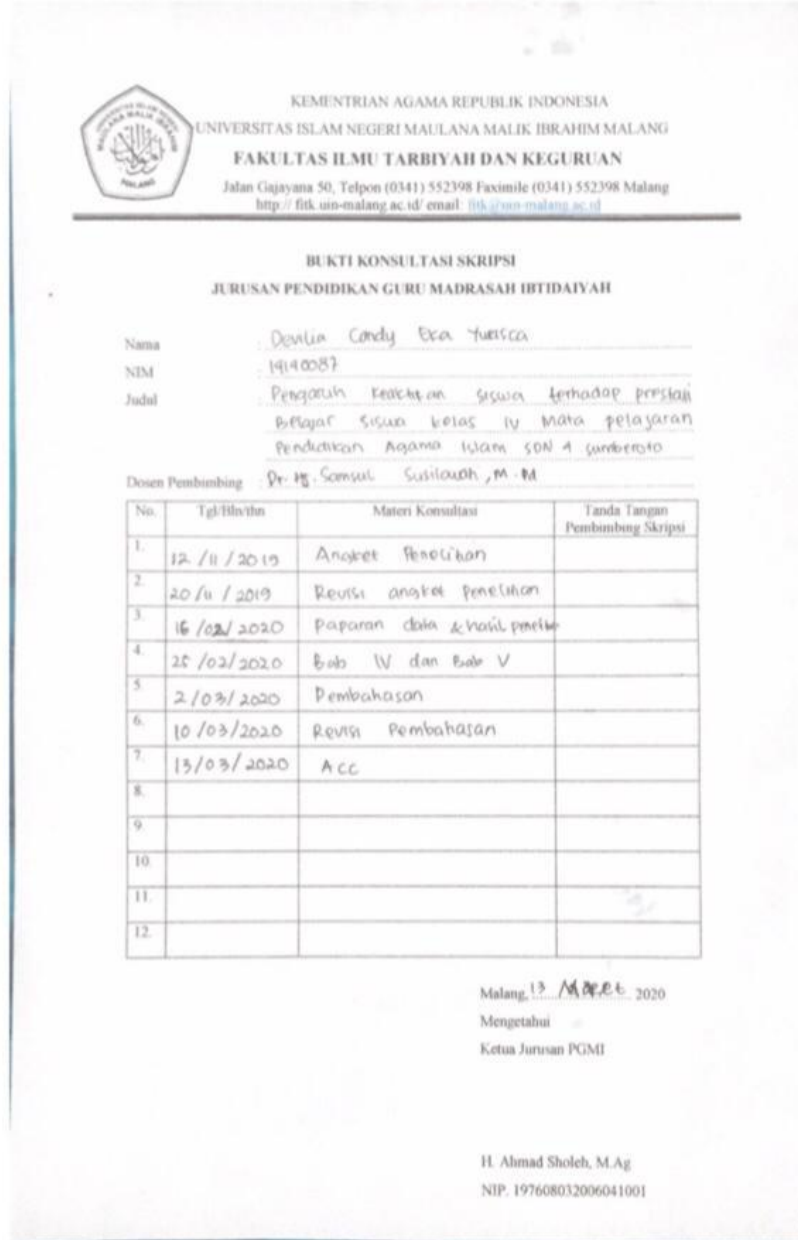 KEMENTRIAN AGAMA REPUBLIK INDONESIA
UNIVERSITAS ISLAM NEGERI MAULANA MALIK IBRAHIM MALANG
FAKULTAS ILMU TARBIYAH DAN KEGURUAN
Jalan Gajayana 50, Telpon (0341) 552398 Faximile (0341) 552398 Malang
http:// fitk.uin-malang.ac.id/ email: fitk@uin-malang.ac.id
MAULANA MALIK IBRAHIM
MALANG
BUKTI KONSULTASI SKRIPSI
JURUSAN PENDIDIKAN GURU MADRASAH IBTIDAIYAH
Nama : Devilia Candy Eka
NIM : 14140087
Judul : Pengaruh Keaktifan siswa terhadap prestasi
Belajar siswa kelas IV Mata pelajaran
Pendidikan Agama Islam SDN 4 Sumberoto
Dosen Pembimbing : Dr. Hj. Samsul Susilawati, M.M
No. Tgl/Bln/thn Materi Konsultasi Tanda Tangan
Pembimbing Skripsi
1. 12 /11 / 2019 Angket Penelitian
2. 20/11 / 2019 Revisi angket Penelitian
3. 16 /02/ 2020 Paparan data & hasil
4. /02/2020 Bab IV dan Bab V
5. 2 /03/ 2020 Pembahasan
6. 10 /03/2020 Revisi Pembahasan
7. 13/03/ 2020 Acc
8.
9.
10.
11.
12.
Malang, 13 Maret 2020
Mengetahui
Ketua Jurusan PGMI
H. Ahmad Sholeh, M.Ag
NIP. 197608032006041001